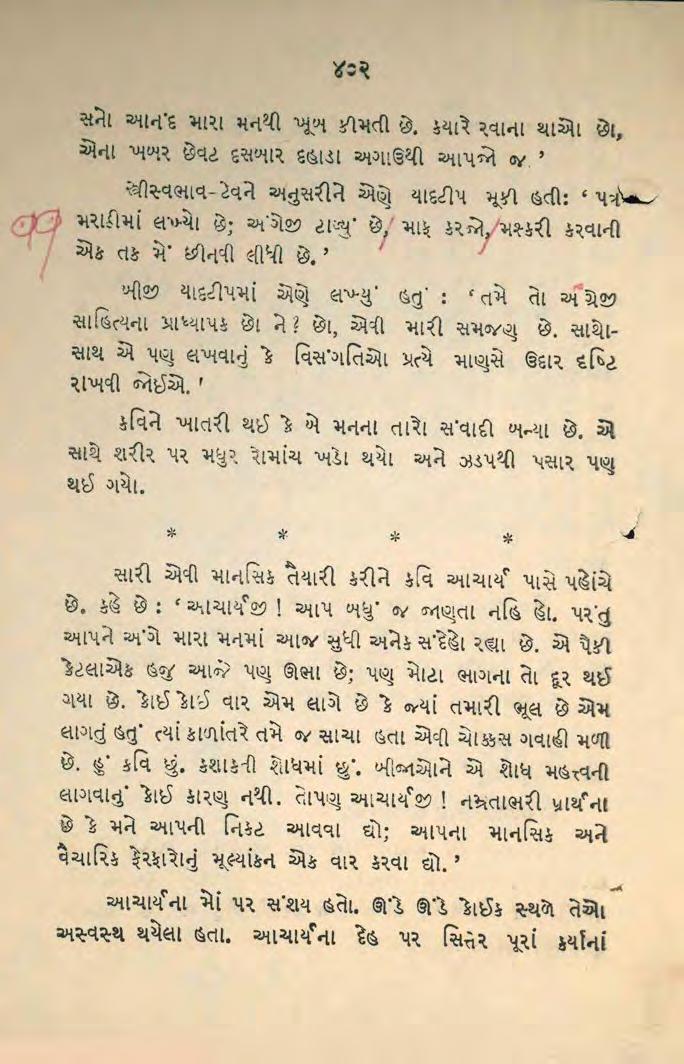 ૪૦૨
સનો આનંદ મારા મનથી ખૂબ કીમતી છે. કયારે રવાના થાઓ છો,
એના ખબર છેવટ દસબાર દહાડા અગાઉથી આપજો જ.'
સ્ત્રીસ્વભાવ-ટેવને અનુસરીને એણે યાદટીપ મૂકી હતી: ‘પત્ર
મરાઠીમાં લખ્યો છે; અંગ્રેજી ટાળ્યું છે, માફ કરજો, મસ્કરી કરવાની
એક તક મેં છીનવી લીધી છે.’
બીજી યાદટીપમાં એણે લખ્યું હતું : ‘તમે તો અંગ્રેજી
સાહિત્યના પ્રાધ્યાપક છો ને? છો, એવી મારી સમજણ છે. સાથો-
સાથ એ પણ લખવાનું કે વિસંગતિઓ પ્રત્યે માણસે ઉદાર દૃષ્ટિ
રાખવી જોઈએ.'
કવિને ખાતરી થઈ કે બે મનના તારો સંવાદી બન્યા છે. એ
સાથે શરીર પર મધુર રોમાંચ ખડો થયો અને ઝડપથી પસાર પણ
થઈ ગયો.
* * * *
સારી એવી માનસિક તૈયારી કરીને કવિ આચાર્ય પાસે પહોંચે
છે. કહે છે : ‘આચાર્યજી ! આપ બધું જ જાણતા નહિ હો. પરંતુ
આપને અંગે મારા મનમાં આજ સુધી અનેક સંદેહો રહ્યા છે. એ પૈકી
કેટલાએક હજુ આજે પણ ઊભા છે; પણ મોટા ભાગના તો દૂર થઈ
ગયા છે. કોઈ કોઈ વાર એમ લાગે છે કે જ્યાં તમારી ભૂલ છે એમ
લાગતું હતું ત્યાં કાળાંતરે તમે જ સાચા હતા એવી ચોક્કસ ગવાહી મળી
છે. હું કવિ છું. કશાકની શોધમાં છું. બીજાઓને એ શોધ મહત્ત્વની
લાગવાનું કોઈ કારણ નથી. તોપણ આચાર્યજી ! નમ્રતાભરી પ્રાર્થના
છે કે મને આપની નિકટ આવવા દ્યો; આપના માનસિક અને
વૈચારિક ફેરફારોનું મૂલ્યાંકન એક વાર કરવા દ્યો.’
આચાર્યના મોં પર સંશય હતો. ઊંડે ઊંડે કોઈક સ્થળે તેઓ
અસ્વસ્થ થયેલા હતા. આચાર્યના દેહ પર સિત્તેર પૂરાં કર્યાનાં